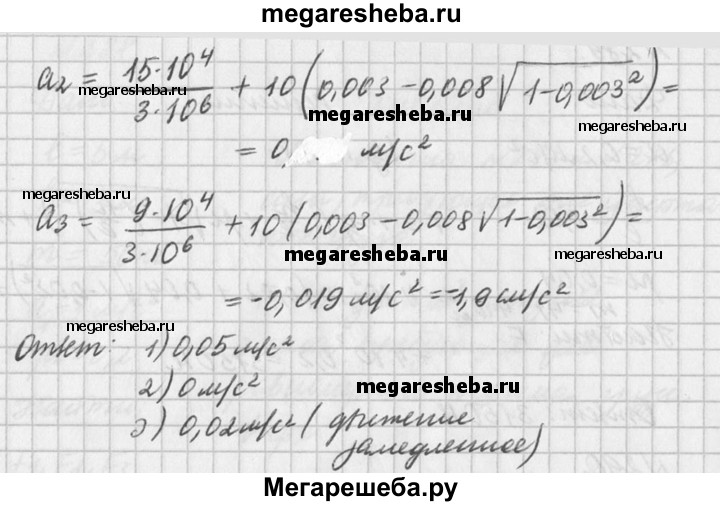 megaresheba.ru
a₂ = 15·10⁴ / 3·10⁶ + 10(0,003 - 0,008√(1-0,003²)) =
megaresheba.ru
megaresheba.ru
= 0, м/с²
megaresheba.ru
a₃ = 9·10⁴ / 3·10⁶ + 10(0,003 - 0,008√(1-0,003²)) =
megaresheba.ru
megaresheba.ru
= -0,019 м/с² = -1,9 см/с²
megaresheba.ru
Ответ: 1) 0,05 м/с²
2) 0 м/с²
megaresheba.ru
3) 0,02 м/с² (движение
замедленное)
Мегарешеба.ру